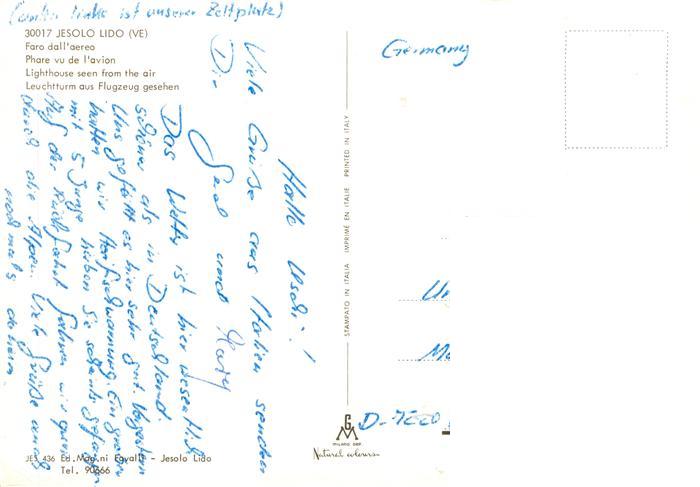 (unten links ist unserer Zeltplatz)
30017 JESOLO LIDO (VE)
Faro dall'aereo
Phare vu de l'avion
Lighthouse seen from the air
Leuchtturm aus Flugzeug gesehen
Hallo Uschi!
Viele Grüße aus Italien senden
Dir
Gerd und
Das Wetter ist hier wesentlich
schöner als in Deutschland.
Uns gefällt es hier sehr gut. Vorgestern
hatten wir Ein großer
mit 5 Junge haben Sie gefangen
Auf der Rückfahrt fahren wir quer
durch die Alpen. Viele Grüße auch
nochmals daheim
JES 436 Ed. Mag.ni Eqvalli - Jesolo Lido
Tel. 90666
STAMPATO IN ITALIA IMPRIMÉ EN ITALIE PRINTED IN ITALY
GM
MILANO DEP.
Natural colours
Germany
Un
Mo
D-7000